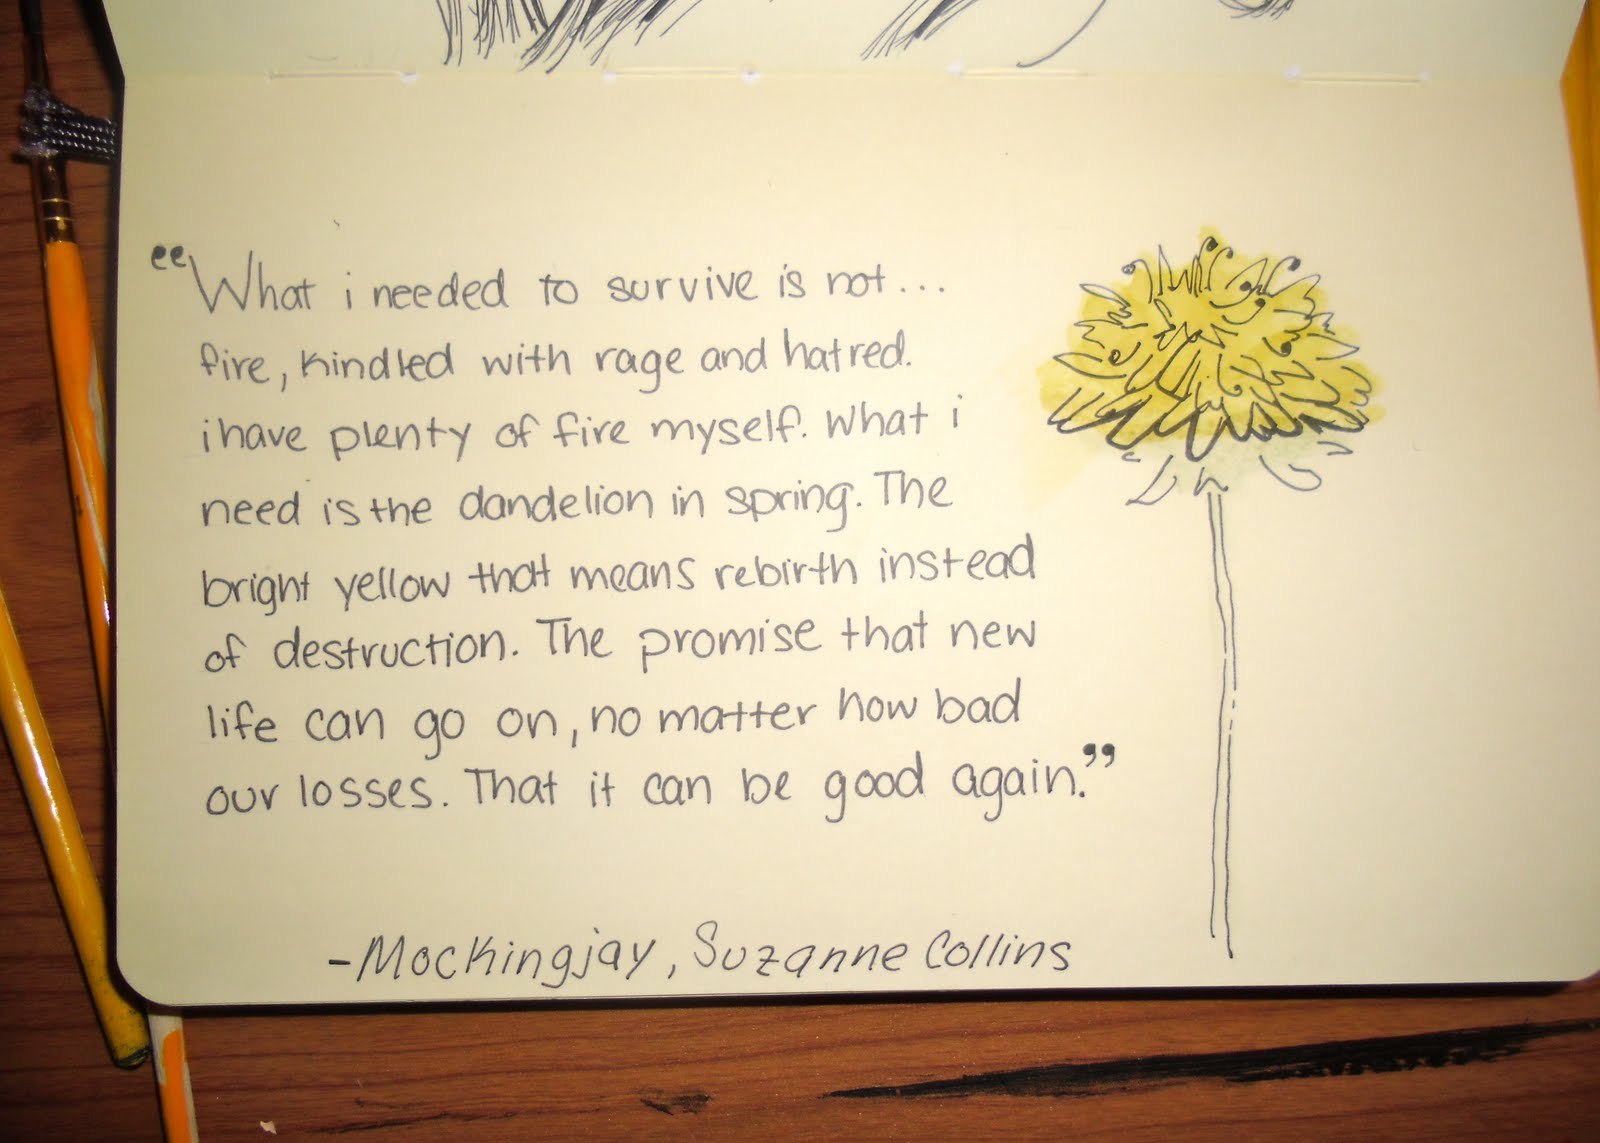 “What i needed to survive is not...
fire, kindled with rage and hatred.
i have plenty of fire myself. What i
need is the dandelion in spring. The
bright yellow that means rebirth instead
of destruction. The promise that new
life can go on, no matter how bad
our losses. That it can be good again.”
-Mockingjay, Suzanne Collins